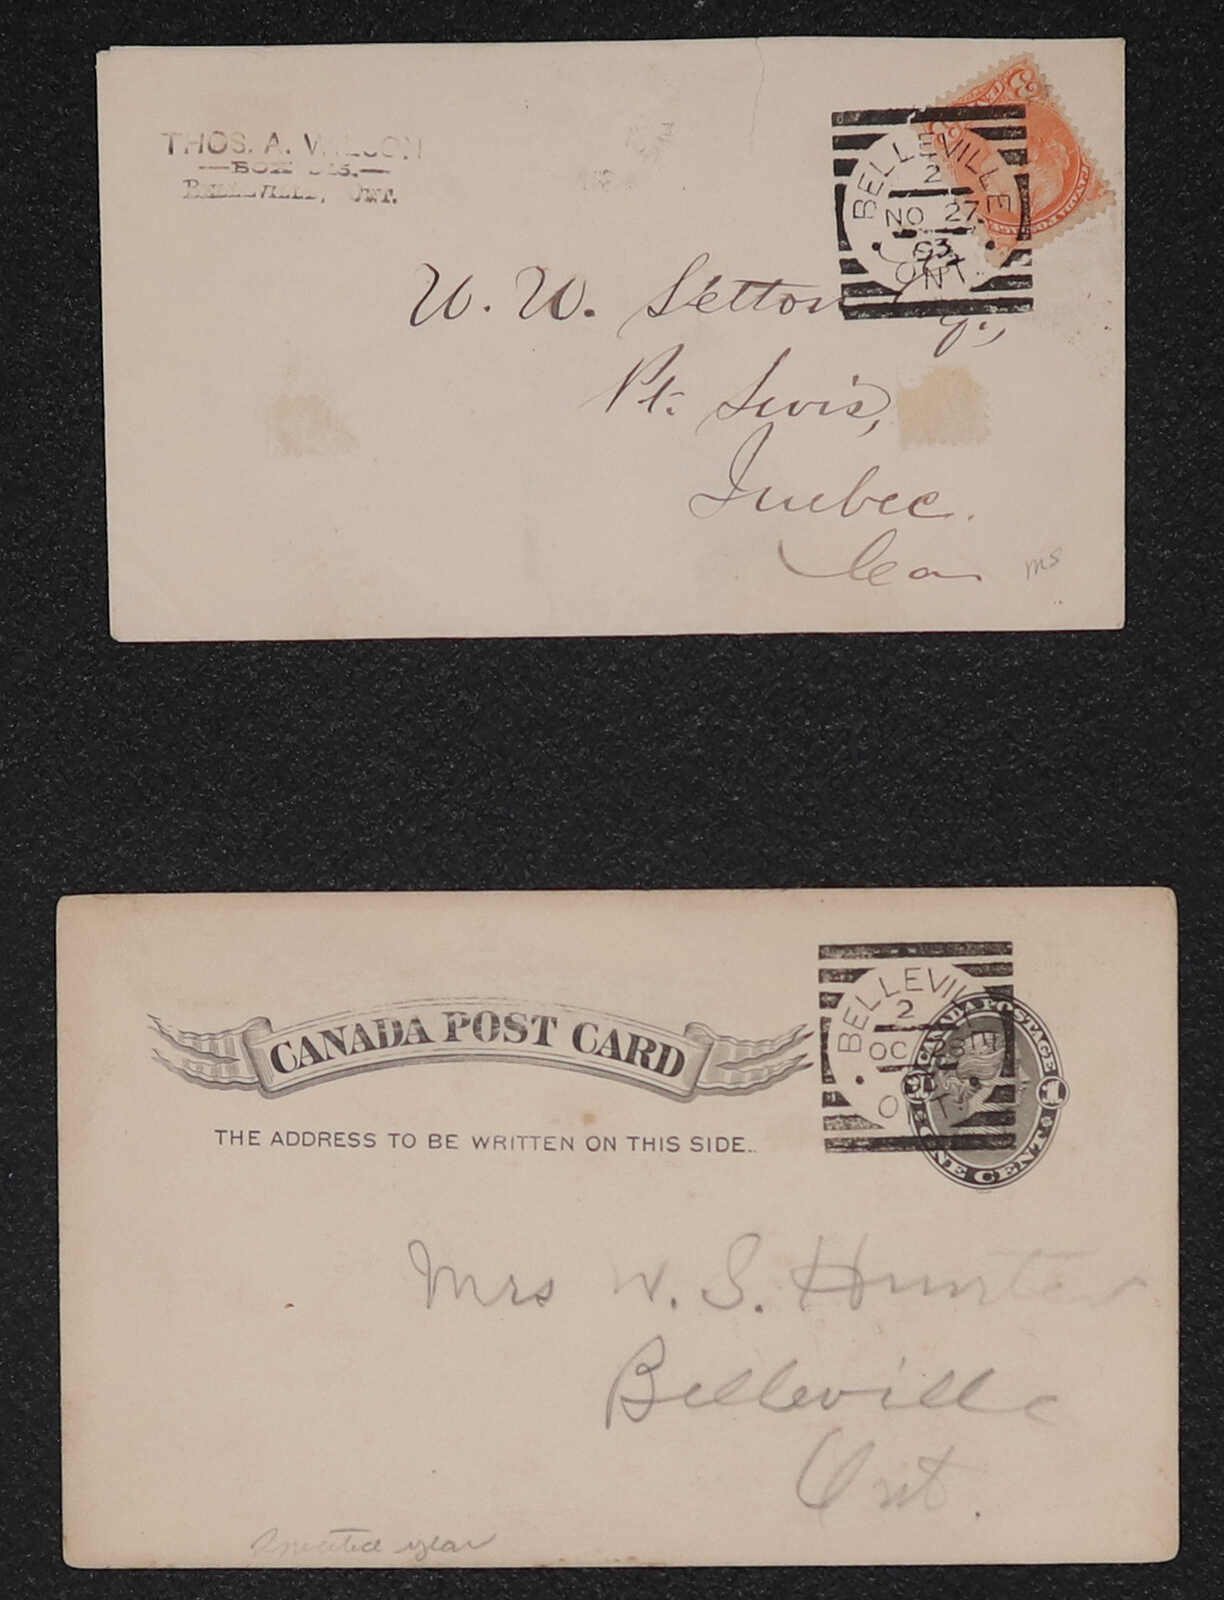 THOS. A. WILSON
BOX
BELLEVILLE, ONT.
BELLEVILLE
2
NO 27
93
ONT.
3
W. W. Setton Esq.,
Pt. Levis,
Quebec.
Can
ms
CANADA POST CARD
THE ADDRESS TO BE WRITTEN ON THIS SIDE.
BELLEVILLE
2
OC
ONT.
CANADA POSTAGE
1
ONE CENT
Mrs W. S. Hunter
Belleville
Ont.
year